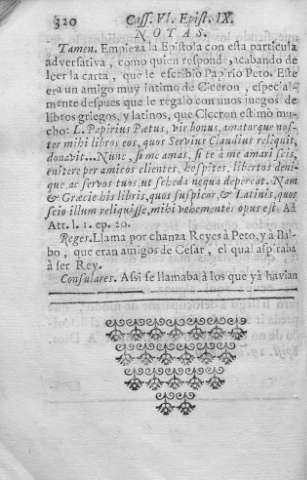 320 Cass. VI. Epist. IX.
NOTAS.
Tamen. Empieza la Epistola con esta particula
adversativa, como quien responde, acabando de
leer la carta, que le escribió Papirio Peto. Este
era un amigo muy intimo de Ciceron, especial-
mente despues que le regalò con unos juegos de
libros griegos, y latinos, que Ciceron estimó mu-
cho: L. Papirius Pætus, vir bonus, amatorque nos-
ter mihi libros eos, quos Servius Claudius reliquit,
donavit... Nunc, si me amas, si te à me amari scis,
enitere per amicos clientes, hospites, libertos deni-
que ac servos tuos, ut scheda nequa depereat. Nam
& Græcis his libris, quos suspicor, & Latinis, quos
scio illum reliquisse, mihi vehementèr opus est. Ad
Att. l. 1. ep. 20.
Reges. Llama por chanza Reyes à Peto, y à Bal-
bo, que eran amigos de Cesar, el qual aspiraba
à ser Rey.
Consulares. Assi se llamaba à los que yà havian